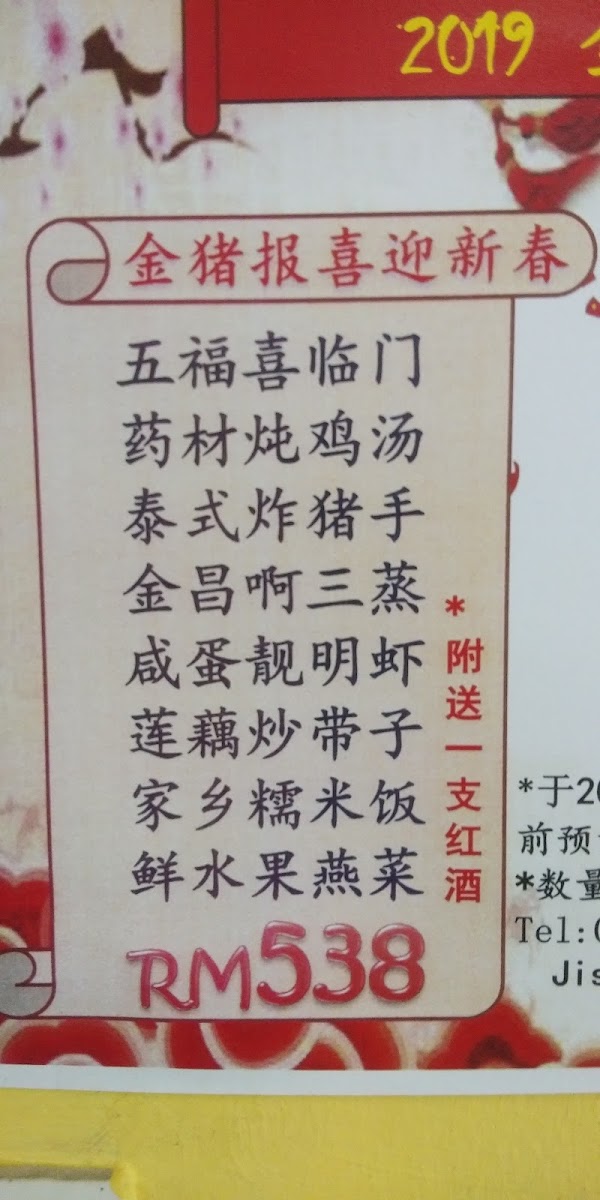 2019
金猪报喜迎新春
五福喜临门
药材炖鸡汤
泰式炸猪手
金昌啊三蒸
咸蛋靓明虾
莲藕炒带子
家乡糯米饭
鲜水果燕菜
*附送一支红酒
RM538
*于20
前预
*数量
Tel:0
Jis